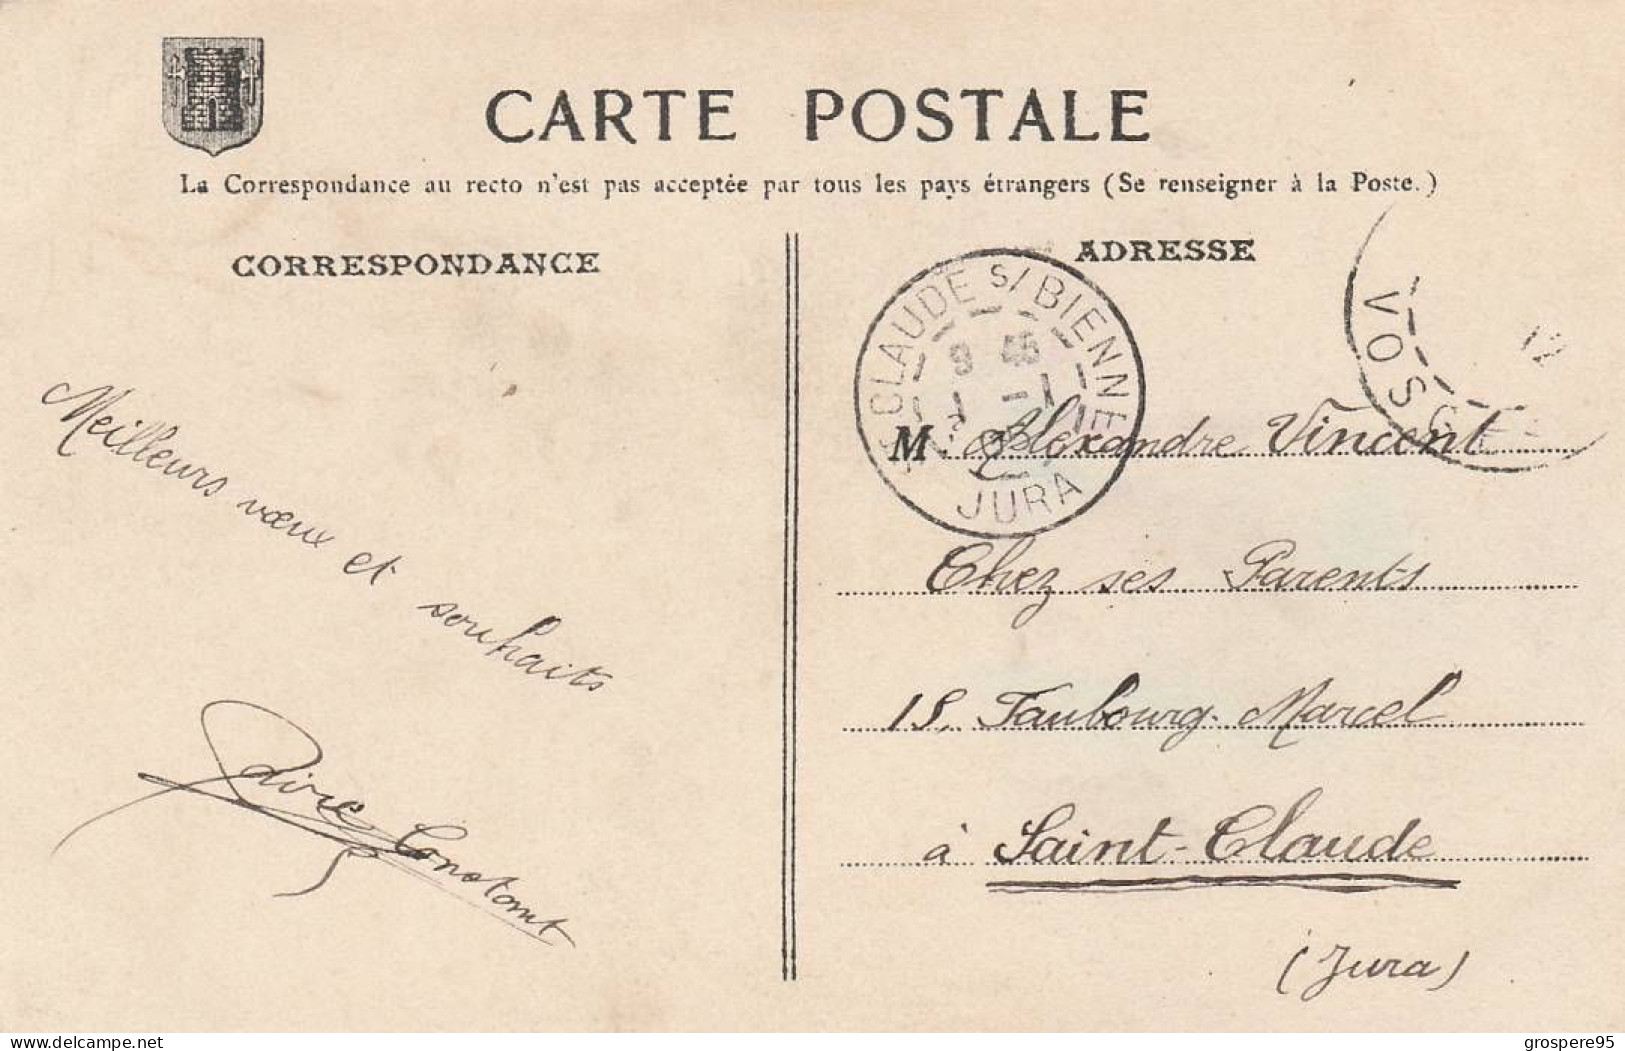 CARTE POSTALE
La Correspondance au recto n'est pas acceptée par tous les pays étrangers (Se renseigner à la Poste.)
CORRESPONDANCE
Meilleurs vœux et souhaits
Constant
ADRESSE
CLAUDE S/ BIENNE
9 45
JURA
VOSGES
12
M Alexandre Vincent
Chez ses Parents
15, Faubourg Marcel
à Saint-Claude
(Jura)
delcampe.net
grospere95